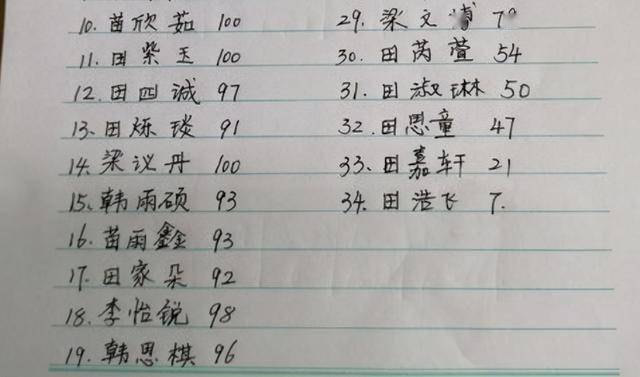 10. 苗欣茹 100
11. 田紫玉 100
12. 田四诚 97
13. 田烁琰 91
14. 梁议丹 100
15. 韩雨硕 93
16. 苗雨鑫 93
17. 田家朵 92
18. 李怡锐 98
19. 韩思棋 96
29. 梁文
30. 田芮萱 54
31. 田淑琳 50
32. 田思童 47
33. 田嘉轩 21
34. 田浩飞 7.